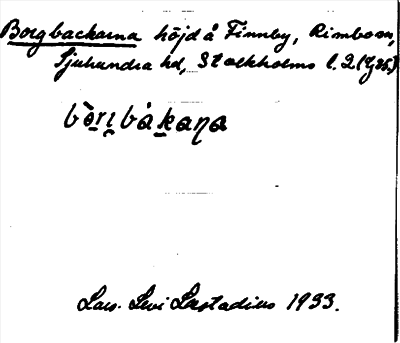 Borgbackarna höjd å Finnby, Rimbo sn,
Sjuhundra hd, Stockholms l.
bo̱rı̱bákaŋa
Lars Levi Læstadius 1933.